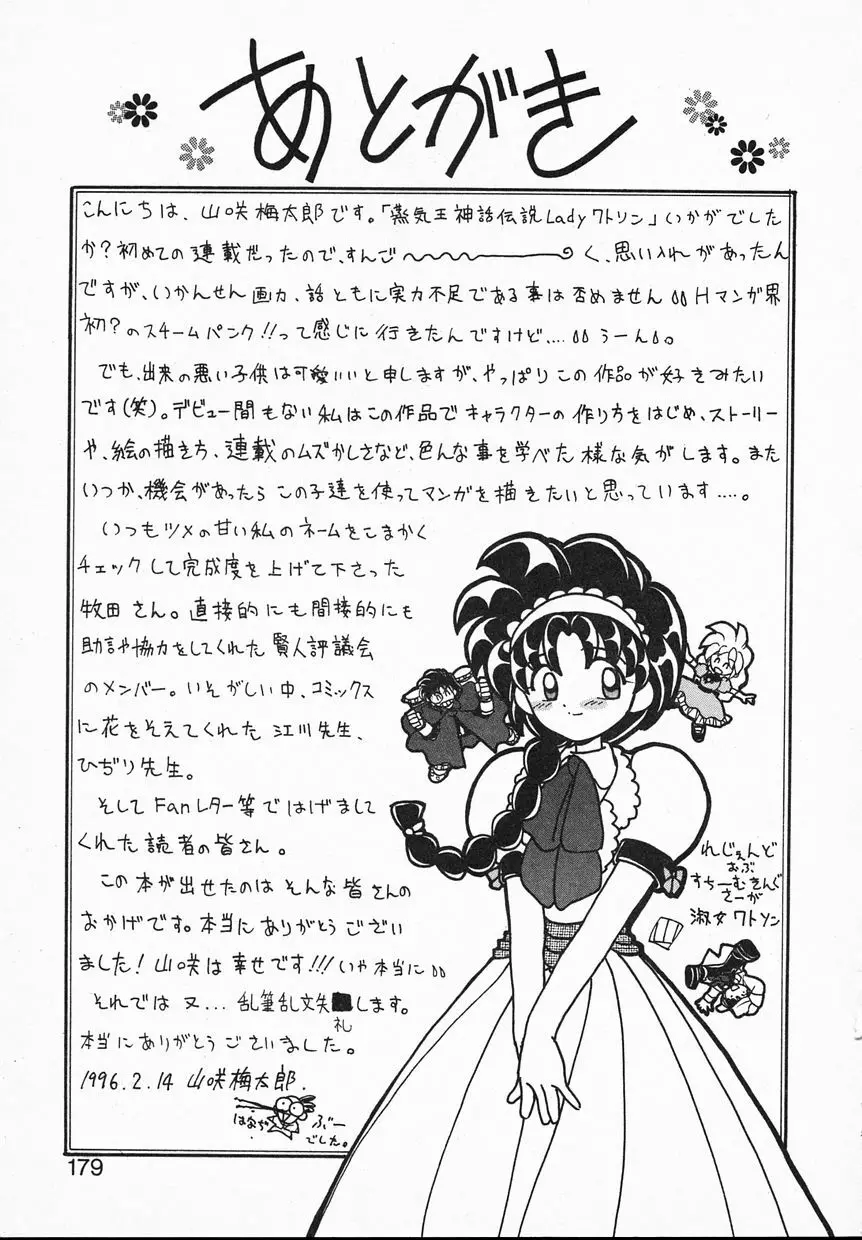 あとがき
こんにちは、山咲梅太郎です。「蒸気王神話伝説Ladyワトソン」いかがでした
か?初めての連載だったので、すんご〜〜〜〜〜く、思い入れがあったん
ですが、いかんせん画力、話ともに実力不足である事は否めません Hマンガ界
初?のスチームパンク!!って感じに行きたんですけど、…. うーん。
でも、出来の悪い子供は可愛いいと申しますが、やっぱりこの作品が好きみたい
です(笑)。デビュー間もない私はこの作品でキャラクターの作り方をはじめ、ストーリー
や、絵の描き方、連載のムズかしさなど、色んな事を学べた様な気がします。また
いつか、機会があったらこの子達を使ってマンガを描きたいと思っています….。
いつもツメの甘い私のネームをこまかく
チェックして完成度を上げて下さった
牧田さん。直接的にも間接的にも
助言や協力をしてくれた賢人評議会
のメンバー。いそがしい中、コミックス
に花をそえてくれた江川先生、
ひぢり先生。
そしてFanレター等ではげまして
くれた読者の皆さん。
この本が出せたのはそんな皆さんの
おかげです。本当にありがとうござい
ました!山咲は幸せです!!!いや本当に
それでは又…乱筆乱文失 します。
礼
本当にありがとうございました。
1996.2.14 山咲梅太郎.
はなぢ
ぶー
でした。
れじぇんど
おぶ
すちーむきんぐ
さーが
淑女ワトソン
179